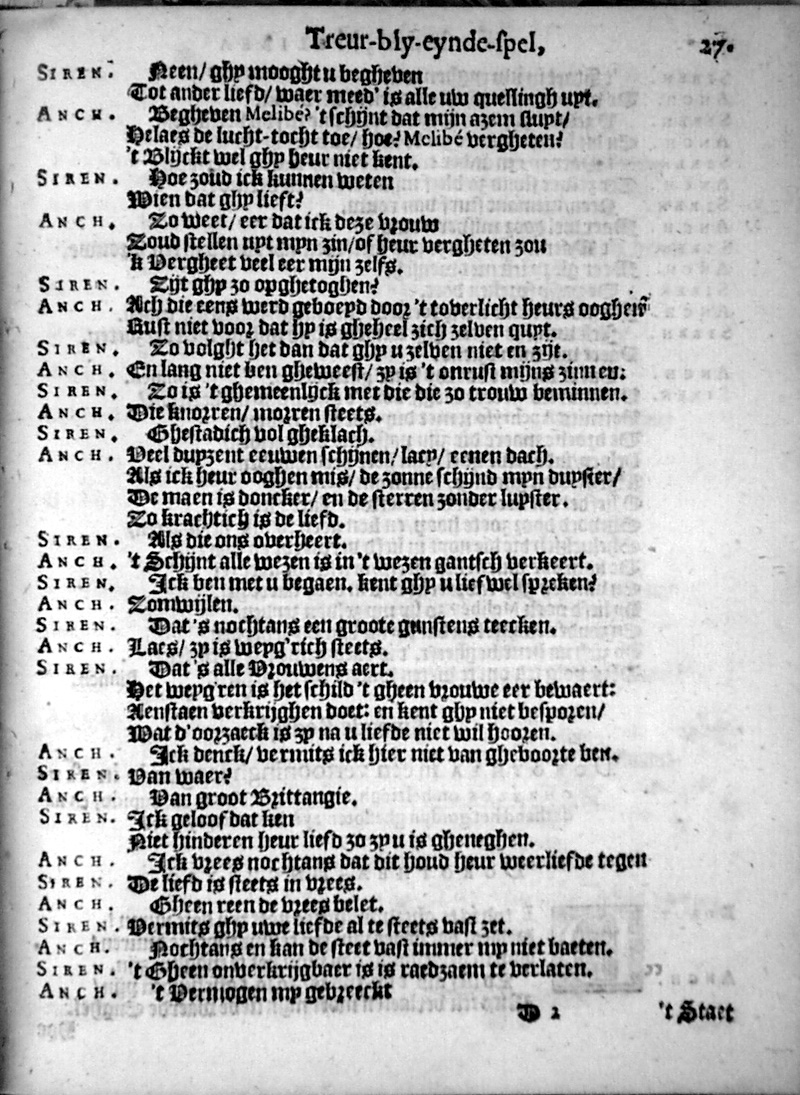 Treur-bly-eynde-spel, 27.
SIREN. Neen/ ghy mooght u begheven
Tot ander liefd/ waer meed' is alle uw quellingh uyt.
ANCH. Begheven Melibé? 't schijnt dat mijn azem sluyt/
Helaes de lucht-tocht toe/ hoe? Melibé vergheten?
't Blijckt wel ghy heur niet kent.
SIREN. Hoe zoud ick kunnen weten
Wien dat ghy lieft?
ANCH. Zo weet/ eer dat ick deze vrouw
Zoud stellen uyt myn zin/ of heur vergheten zou
'k Vergheet veel eer mijn zelfs.
SIREN. Zijt ghy zo opghetoghen?
ANCH. Ach die eens werd geboeyd door 't toverlicht heurs ooghen
Rust niet voor dat hy is gheheel zich zelven quyt.
SIREN. Zo volght het dan dat ghy u zelven niet en zijt.
ANCH. En lang niet ben gheweest/ zy is 't onrust mijns zinnen:
SIREN. Zo is 't ghemeenlijck met die die zo trouw beminnen.
ANCH. Die knorren/ morren steets.
SIREN. Ghestadich vol gheklach.
ANCH. Veel duyzent eeuwen schijnen/ lacy/ eenen dach.
Als ick heur ooghen mis/ de zonne schijnd myn duyster/
De maen is doncker/ en de sterren zonder luyster.
Zo krachtich is de liefd.
SIREN. Als die ons overheert.
ANCH. 't Schijnt alle wezen is in 't wezen gantsch verkeert.
SIREN. Ick ben met u begaen. kent ghy u lief wel spreken?
ANCH. Zomwijlen.
SIREN. Dat 's nochtans een groote gunstens teecken.
ANCH. Laes/ zy is weyg'rich steets.
SIREN. Dat 's alle Vrouwens aert.
Het weyg'ren is het schild 't gheen vrouwe eer bewaert:
Aenstaen verkrijghen doet: en kent ghy niet besporen/
Wat d'oorzaeck is zy na u liefde niet wil hooren.
ANCH. Ick denck/ vermits ick hier niet van gheboorte ben.
SIREN. Van waer?
ANCH. Van groot Brittangie.
SIREN. Ick geloof dat ken
Niet hinderen heur liefd zo zy u is gheneghen.
ANCH. Ick vrees nochtans dat dit houd heur weerliefde tegen
SIREN. De liefd is steets in vrees.
ANCH. Gheen reen de vrees belet.
SIREN. Vermits ghy uwe liefde al te steets vast zet.
ANCH. Nochtans en kan de steet vast immer my niet baeten.
SIREN. 't Gheen onverkrijgbaer is is raedzaem te verlaten.
ANCH. 't Vermogen my gebreeckt
D 2 't Staet